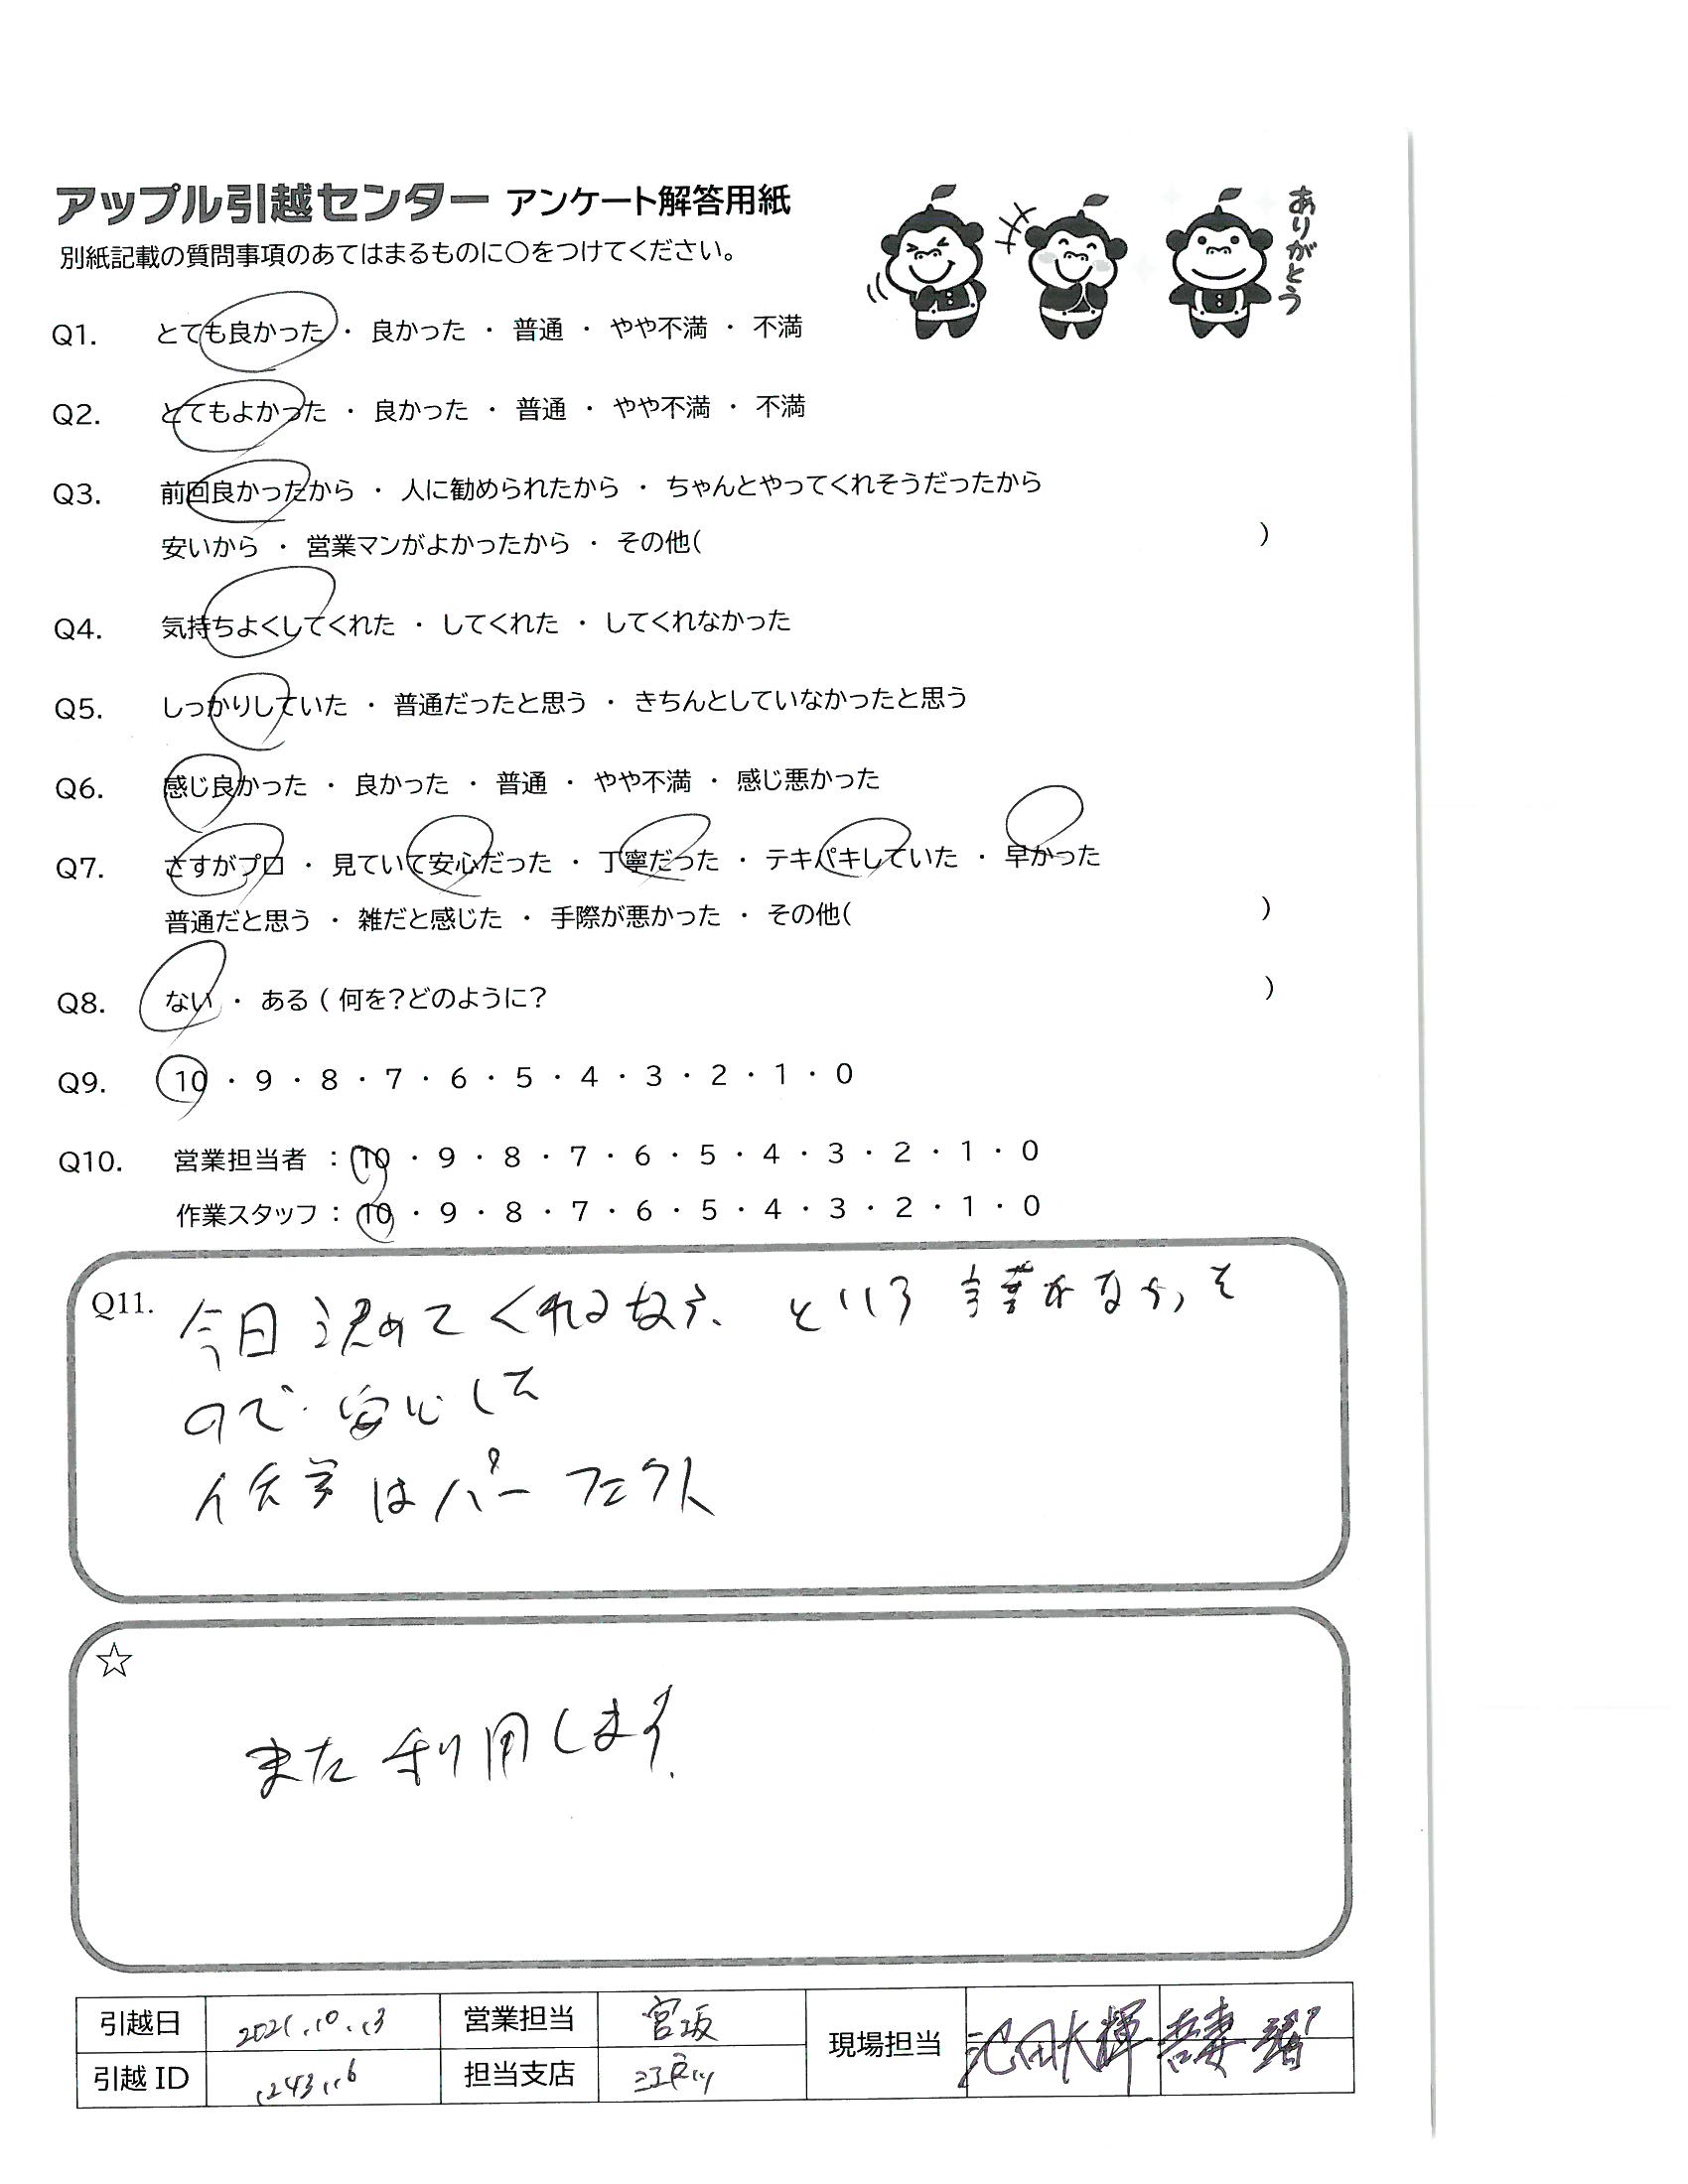 アップル引越センター アンケート解答用紙
別紙記載の質問事項のあてはまるものに〇をつけてください。
ありがとう
Q1. とても良かった ・ 良かった ・ 普通 ・ やや不満 ・ 不満
Q2. とてもよかった ・ 良かった ・ 普通 ・ やや不満 ・ 不満
Q3. 前回良かったから ・ 人に勧められたから ・ ちゃんとやってくれそうだったから
安いから ・ 営業マンがよかったから ・ その他( )
Q4. 気持ちよくしてくれた ・ してくれた ・ してくれなかった
Q5. しっかりしていた ・ 普通だったと思う ・ きちんとしていなかったと思う
Q6. 感じ良かった ・ 良かった ・ 普通 ・ やや不満 ・ 感じ悪かった
Q7. さすがプロ ・ 見ていて安心だった ・ 丁寧だった ・ テキパキしていた ・ 早かった
普通だと思う ・ 雑だと感じた ・ 手際が悪かった ・ その他( )
Q8. ない ・ ある ( 何を?どのように? )
Q9. 10 ・ 9 ・ 8 ・ 7 ・ 6 ・ 5 ・ 4 ・ 3 ・ 2 ・ 1 ・ 0
Q10. 営業担当者 : 10 ・ 9 ・ 8 ・ 7 ・ 6 ・ 5 ・ 4 ・ 3 ・ 2 ・ 1 ・ 0
作業スタッフ : 10 ・ 9 ・ 8 ・ 7 ・ 6 ・ 5 ・ 4 ・ 3 ・ 2 ・ 1 ・ 0
Q11. 今日 決めてくれるなら、という 言葉がなかった
ので、安心した
作業はパーフェクト
☆
また利用します.
引越日 2021.10.13 営業担当 宮坂 現場担当 池田大輝 吾妻
引越 ID 担当支店